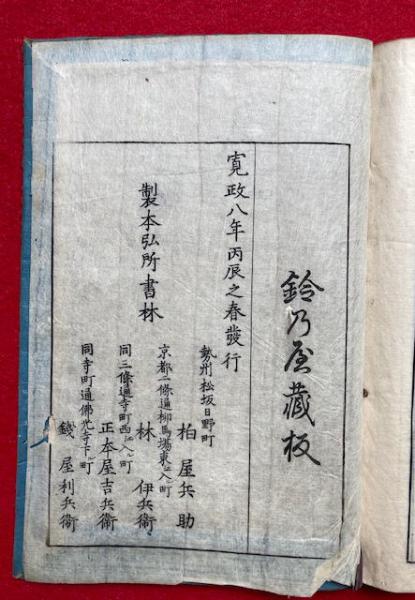 鈴乃屋蔵板
寛政八年丙辰之春發行
製本弘所書林
勢州松坂日野町
柏屋兵助
京都二條通柳馬場東ヘ入ル町
林伊兵衞
同三條通寺町西ヘ入ル町
正本屋吉兵衞
同寺町通佛光寺下ル町
錢屋利兵衞